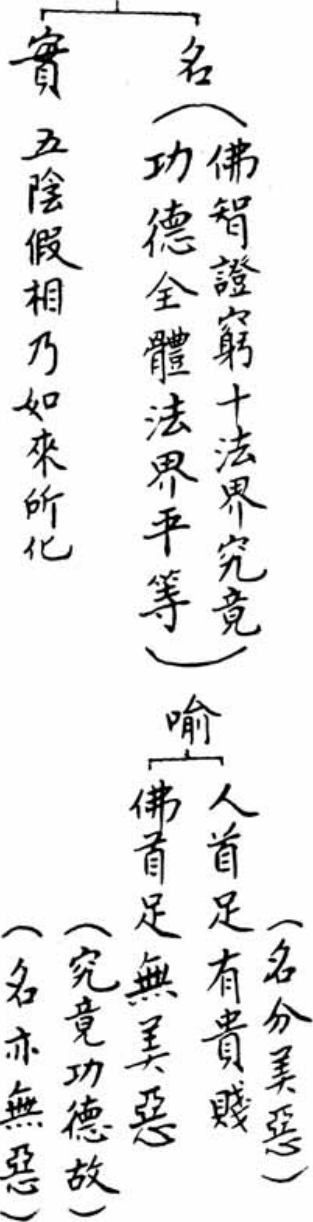 名
（佛智證窮十法界究竟
功德全體法界平等）
喻
人首足有貴賤
（名分美惡）
佛首足無美惡
（究竟功德故）
（名亦無惡）
實
五陰假相乃如來所化